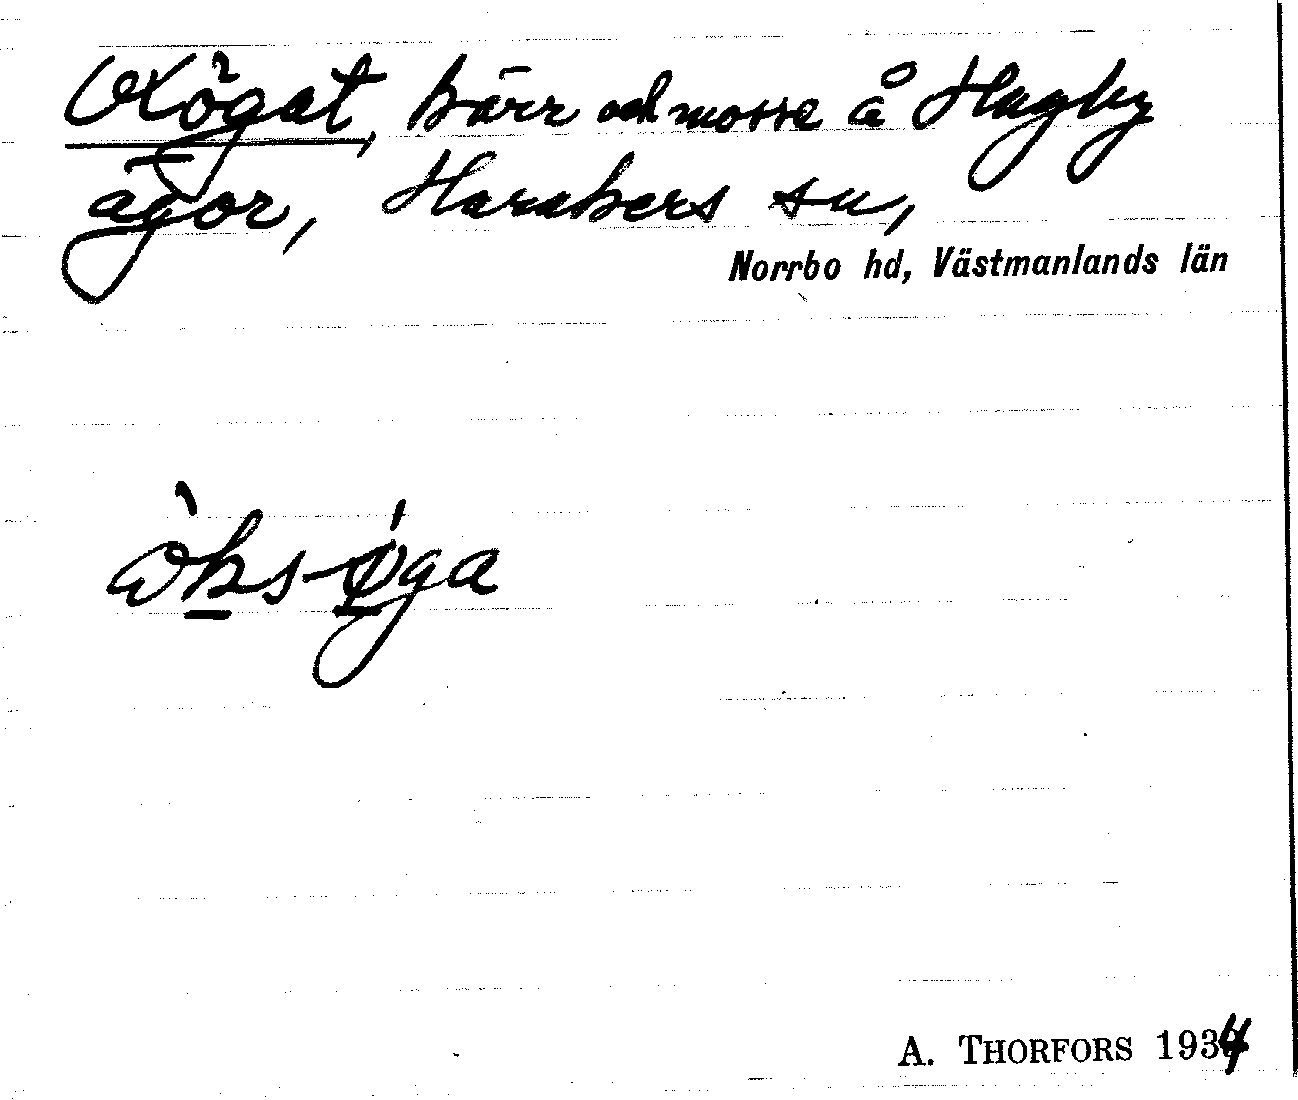 Oxögat, kärr och mosse å Hagby
ägor, Harakers sn,
Norrbo hd, Västmanlands län
òks-ǿga
A. THORFORS 1934